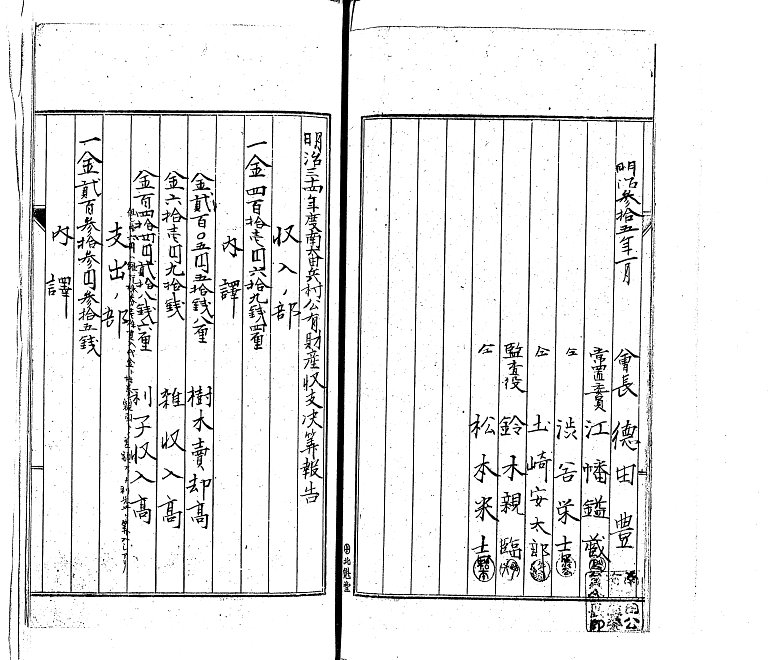 明治参拾五年一月
會長 德田豊
常置委員 江幡鑑蔵
仝 渋谷栄士
仝 土崎安太郎
監査役 鈴木親臨
仝 松本米士
明治三十四年度南番兵村公有財産収支决筭報告
収入ノ部
一金四百拾壱円六拾九銭四厘
内譯
金貳百〇五円五拾銭八厘 樹木賣却高
金六拾壱円九拾銭 雑収入高
金百四拾四円貳拾八銭六厘 利子収入高
支出ノ部
一金貳百参拾参円参拾五銭
内譯
北魁堂